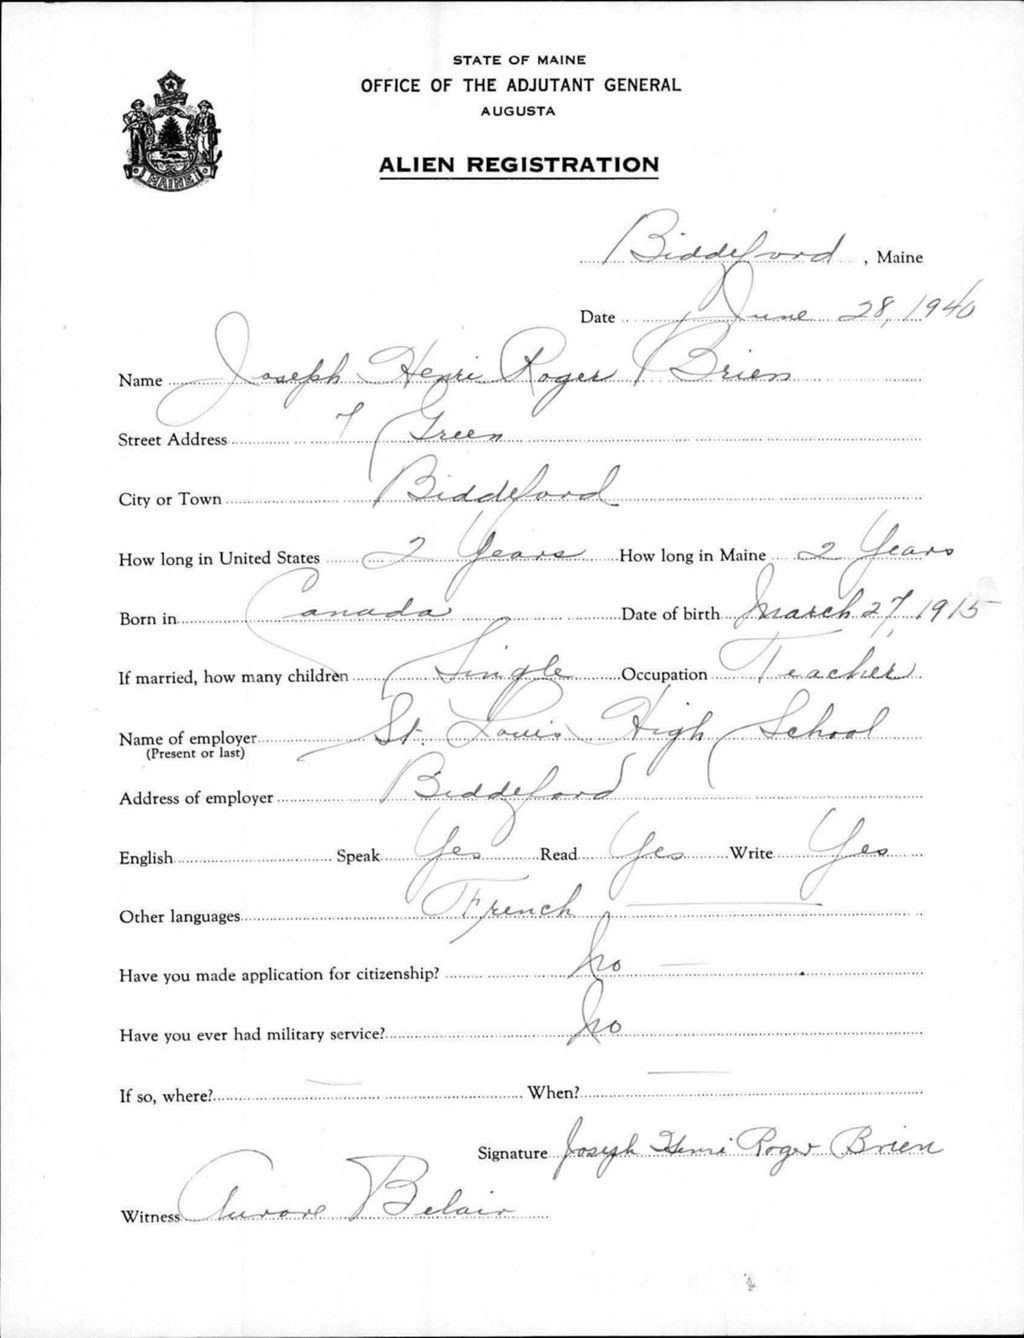 STATE OF MAINE
OFFICE OF THE ADJUTANT GENERAL
AUGUSTA
ALIEN REGISTRATION
MAINE
Biddeford, Maine
Date June 28, 1940
Name Joseph Henri Roger Brien
Street Address 7 Green
City or Town Biddeford
How long in United States 2 Years How long in Maine 2 Years
Born in Canada Date of birth March 27, 1915
If married, how many children Single Occupation Teacher
Name of employer St. Louis High School
(Present or last)
Address of employer Biddeford
English Speak Yes Read Yes Write Yes
Other languages French
Have you made application for citizenship? No
Have you ever had military service? No
If so, where? — When? —
Signature Joseph Henri Roger Brien
Witness Aurore Belair